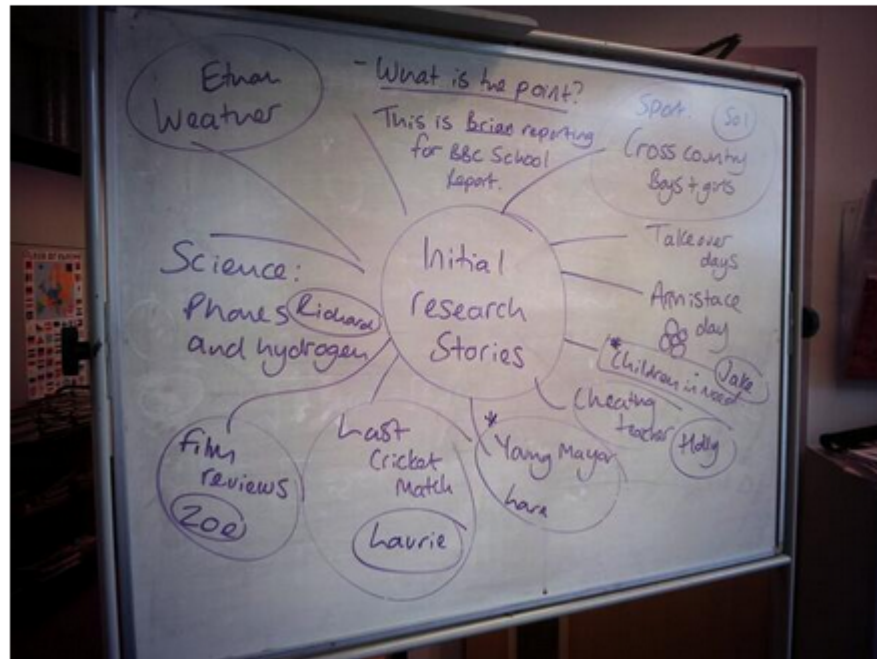 Ethan
Weather
- What is the point?
This is Brian reporting
for BBC School
Report.
Sport.
Sol
Cross country
Boys + girls
Takeover
days
Armistace
day
* Children in Need
Jake
Cheating
teacher
Holly
* Young Mayor
Lara
Last
Cricket
Match
Laurie
Film
reviews
Zoe
Science:
Phones
Richard
and hydrogen
Initial
research
Stories